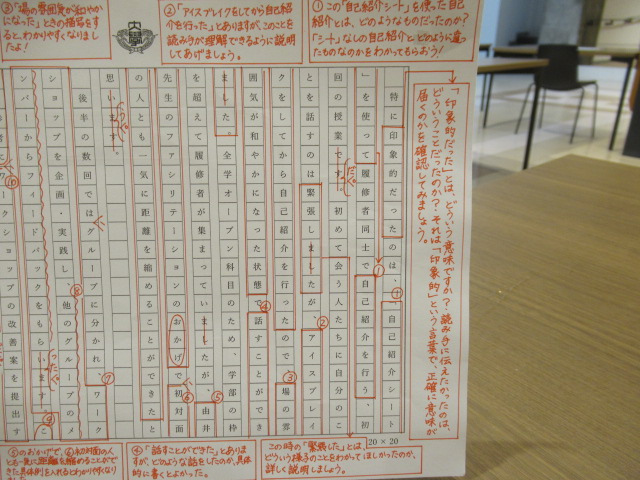 ①この「自己紹介シート」を使った自己
紹介とは、どのようなものだったのか?
「シート」なしの自己紹介とどのように違っ
たものなのかをわかってもらおう!
②「アイスブレイクをしてから自己紹
介を行った」とありますが、このことを
読み手が理解できるように説明
してあげましょう。
③「場の雰囲気が和やか
になった」ときの描写をする
とわかりやすくなりまし
たよ!
「印象的だった」とは、どういう意味ですか?読み手に伝えたかったのは、
どういうことだったのか?それは「印象的」という言葉で、正確に意味が
届くのかを確認してみましょう。
特に印象的だったのは、「自己紹介シート
」を使って履修者同士で自己紹介を行う、初
回の授業です。初めて会う人たちに自分のこ
とを話すのは緊張しましたが、アイスブレイ
クをしてから自己紹介を行ったので、場の雰
囲気が和やかになった状態で話すことができ
ました。全学オープン科目のため、学部の枠
を超えて履修者が集まっていましたが、由井
先生のファシリテーションのおかげで、初対面
の人とも一気に距離を縮めることができたと
思います。
後半の数回ではグループに分かれ、ワーク
ショップを企画・実践し、他のグループのメ
ンバーからフィードバックをもらいます。こ
ークショップの改善案を提出す
20×20
この時の「緊張した」とは、
どういう様子のことをわかってほしかったのか、
詳しく説明しましょう。
④「話すことができた」とありま
すが、どのような話をしたのか、具体
的に書くとよかった。
⑤のおかげで、⑥初対面の人